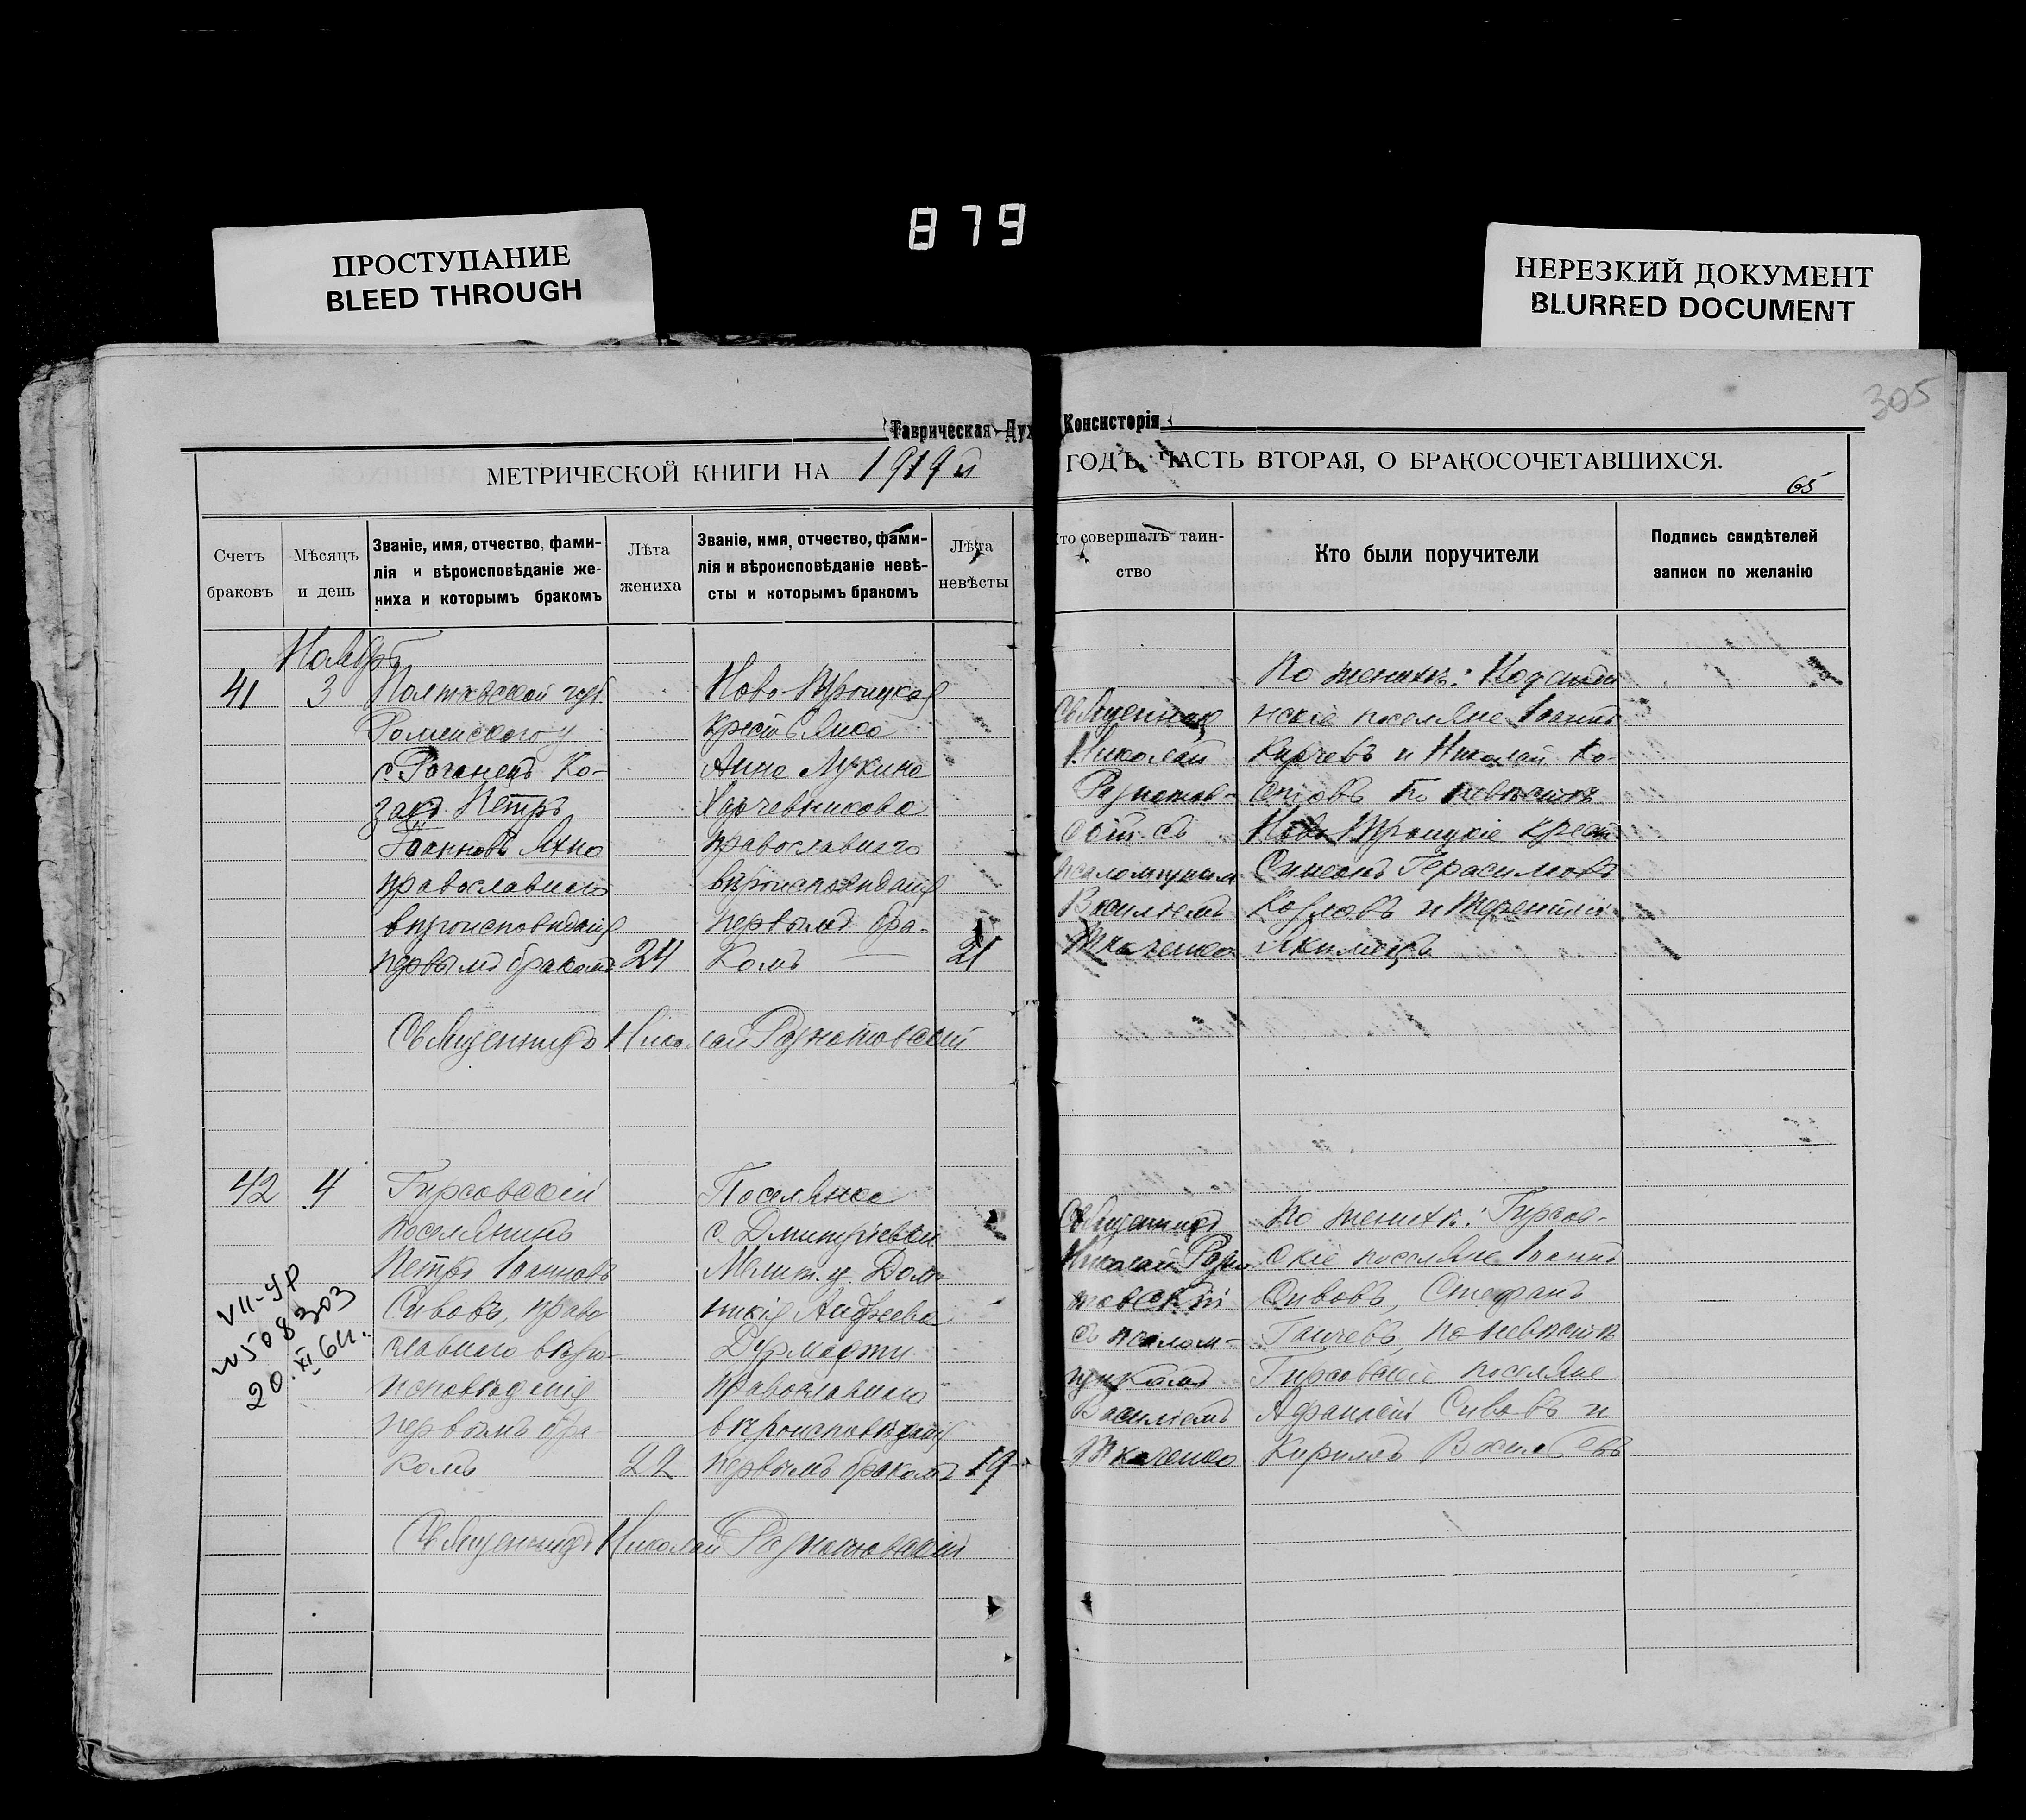 879
ПРОСТУПАНИЕ
BLEED THROUGH
НЕРЕЗКИЙ ДОКУМЕНТ
BLURRED DOCUMENT
305
Таврическая Дух
Консисторія
МЕТРИЧЕСКОЙ КНИГИ НА 1919й
ГОДЪ ЧАСТЬ ВТОРАЯ, О БРАКОСОЧЕТАВШИХСЯ.
65
Счетъ
браковъ
Мѣсяцъ
и день
Званіе, имя, отчество, фами-
лія и вѣроисповѣданіе же-
ниха и которымъ бракомъ
Лѣта
жениха
Званіе, имя, отчество, фами-
лія и вѣроисповѣданіе невѣ-
сты и которымъ бракомъ
Лѣта
невѣсты
то совершалъ таин-
ство
Кто были поручители
Подпись свидѣтелей
записи по желанію
Ноябрь
41
3
Полтавской губ.
Роменского у
с. Козакъ Петръ
Іоанновъ
православнаго
вѣроисповѣданія
первымъ бракомъ
24
Ново-Троицкая
крестьянка
Анна Лукина
Харчевникова
православнаго
вѣроисповѣданія
первымъ бра-
комъ
21
Священникъ
Николай
Василіемъ
Ткаченко
По женихѣ:
поселяне Іоаннъ
и Николай
По невѣстѣ
Ново Троицкіе крест.
Симеонъ Герасимовъ
Козловъ и Терентій
Якимецъ
Священникъ Николай
42
4
Гирсовскій
поселянинъ
Петръ Іоанновъ
Сивовъ, право
славнаго вѣро-
исповѣданія
первымъ бра-
комъ
22
Поселянка
с. Дмитріевки
Мелит. у. Дом-
никія Андреева
православнаго
вѣроисповѣданія
первымъ бракомъ
19
Священникъ
Николай
съ псалом-
щикомъ
Василіемъ
Ткаченко
По женихѣ: Гирсов-
скіе поселяне Іоаннъ
Сивовъ, Стефанъ
по невѣстѣ
Гирсовскіе поселяне
Афанасій Сивовъ и
Кирилъ Васильевъ
Священникъ Николай
VII-УР
№508303
20.XI 64г.